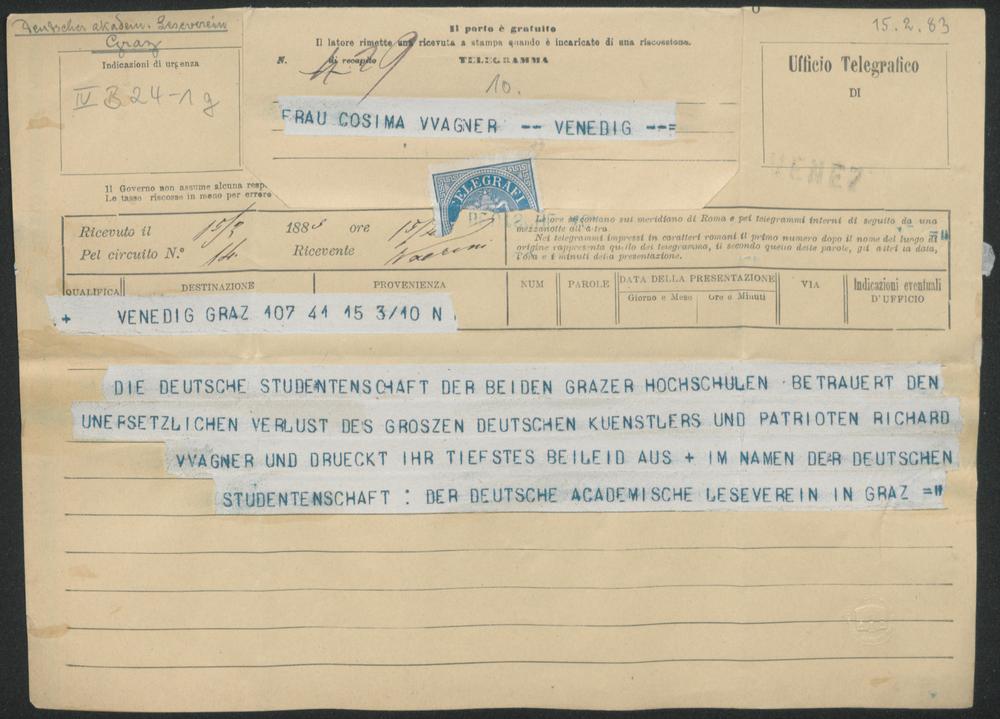 Deutscher akadem. Leseverein
Graz
15.2.83
Il porto è gratuito
Il latore rimette una ricevuta a stampa quando è incaricato di una riscossione.
Indicazioni di urgenza
N. 429 di recapito
TELEGRAMMA
Ufficio Telegrafico
DI
IV B 24-1g
10.
FRAU COSIMA VVAGNER -- VENEDIG --=
VENEZ
TELEGRAFI
Il Governo non assume alcuna resp.
Le tasse riscosse in meno per errore
Ricevuto il 15/2 1883 ore 15/
Pel circuito N.° 14 Ricevente
L'ore si contano sul meridiano di Roma e pei telegrammi interni di seguito da una
mezzanotte all'altra.
Nei telegrammi impressi in caratteri romani il primo numero dopo il nome del luogo di
origine rappresenta quello del telegramma, il secondo quello delle parole, gli altri la data,
l'ora e i minuti della presentazione.
QUALIFICA
DESTINAZIONE
PROVENIENZA
NUM
PAROLE
DATA DELLA PRESENTAZIONE
Giorno e Mese
Ore e Minuti
VIA
Indicazioni eventuali
D'UFFICIO
+ VENEDIG GRAZ 107 41 15 3/10 N
DIE DEUTSCHE STUDENTENSCHAFT DER BEIDEN GRAZER HOCHSCHULEN BETRAUERT DEN
UNERSETZLICHEN VERLUST DES GROSZEN DEUTSCHEN KUENSTLERS UND PATRIOTEN RICHARD
VVAGNER UND DRUECKT IHR TIEFSTES BEILEID AUS + IM NAMEN DER DEUTSCHEN
STUDENTENSCHAFT : DER DEUTSCHE ACADEMISCHE LESEVEREIN IN GRAZ ="